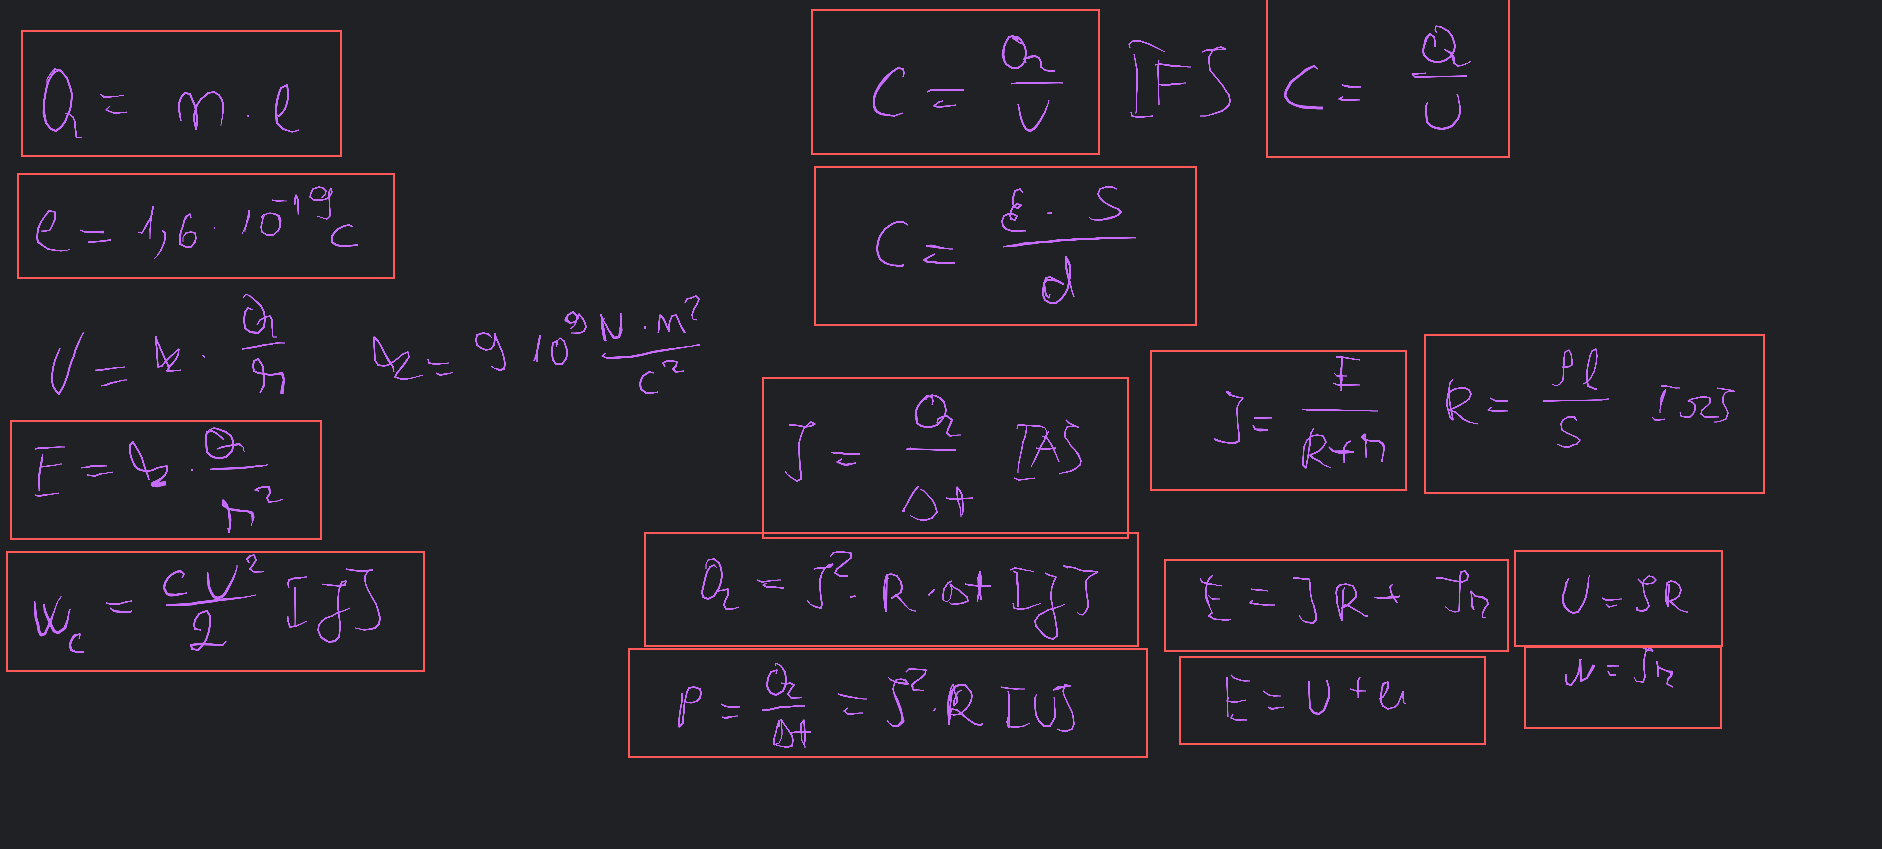 Q = n · e
e = 1,6 · 10⁻¹⁹ C
V = k · Q/r
k = 9 10⁹ N · m²/C²
E = k · Q/r²
W_C = CU²/2 [J]
C = Q/V [F]
C = Q/U
C = ε · S/d
I = Q/Δt [A]
I = E/(R+r)
R = ρl/S [Ω]
Q = I² · R · Δt [J]
E = IR + Ir
U = IR
P = Q/Δt = I² · R [U]
E = U + u
u = Ir